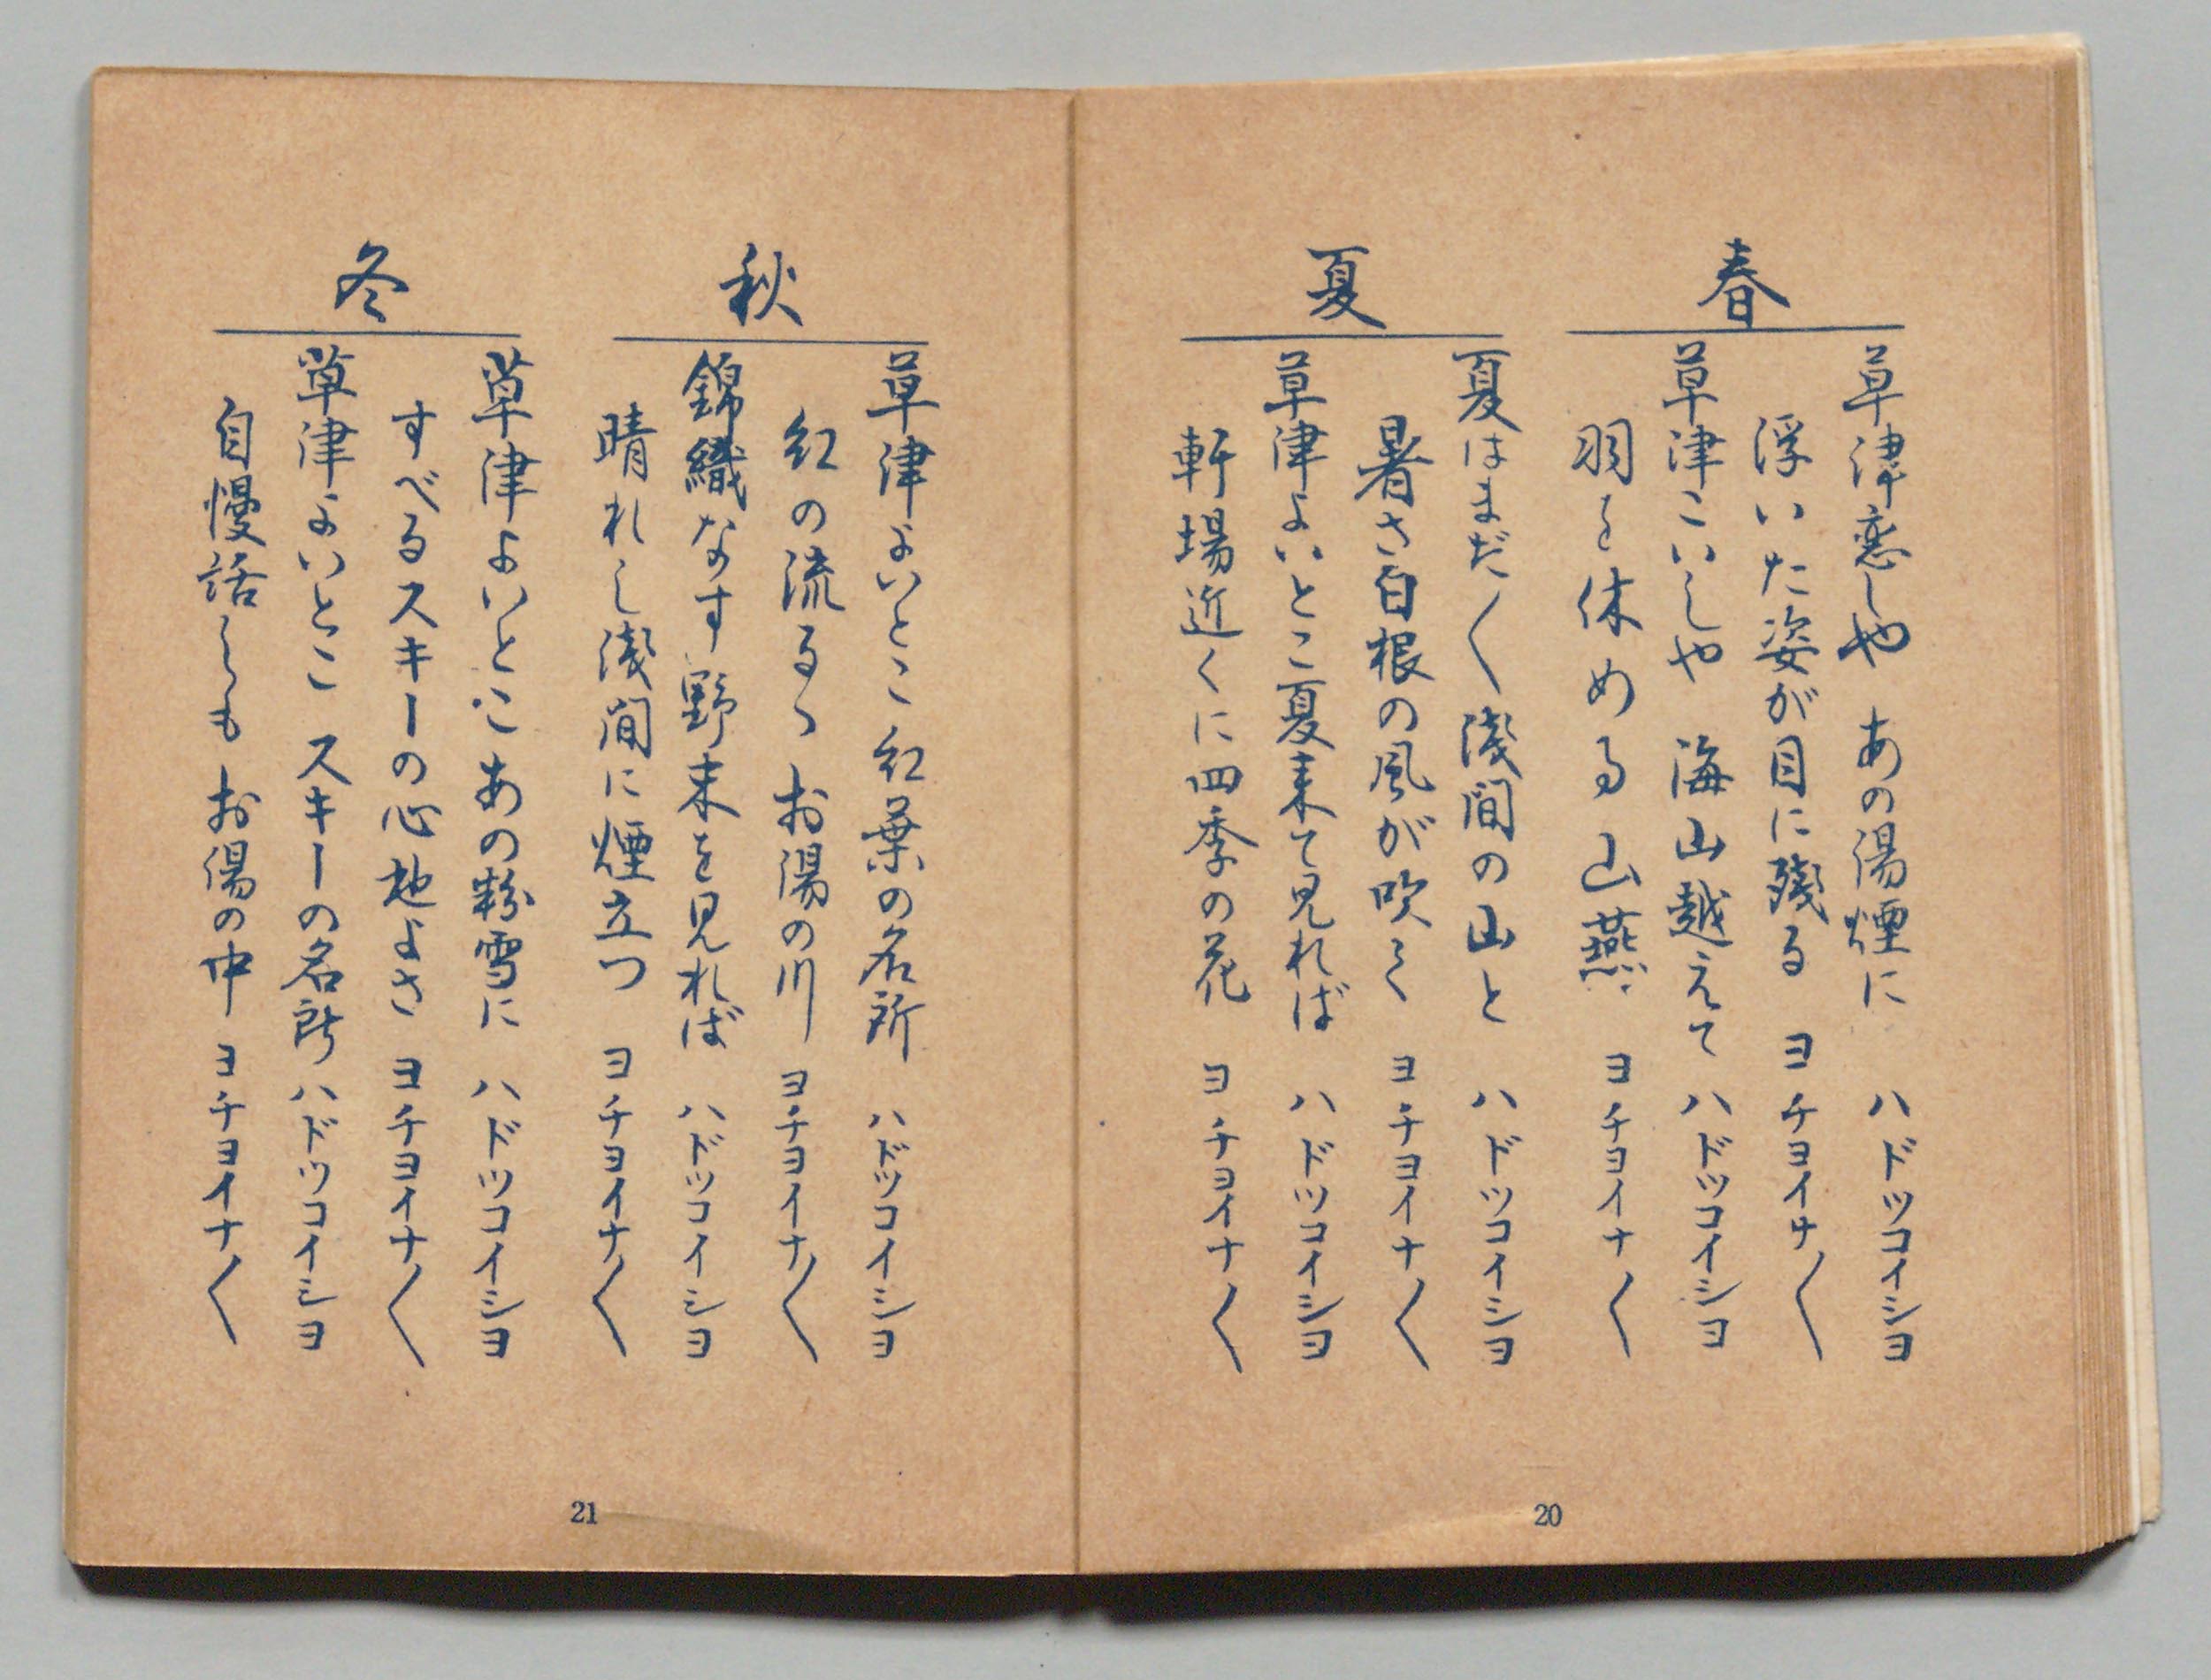 春
草津恋しや あの湯煙に ハドツコイシヨ
浮いた姿が目に残る ヨチヨイナ〱
草津こいしや 海山越えて ハドツコイシヨ
羽を休める山燕 ヨチヨイナ〱
夏
夏はまだ〱浅間の山と ハドツコイシヨ
暑さ白根の風が吹く ヨチヨイナ〱
草津よいとこ夏来て見れば ハドツコイシヨ
軒場近くに四季の花 ヨチヨイナ〱
20
秋
草津よいとこ 紅葉の名所 ハドツコイシヨ
紅の流るゝお湯の川 ヨチヨイナ〱
錦織なす野末を見れば ハドツコイシヨ
晴れし浅間に煙立つ ヨチヨイナ〱
冬
草津よいとこあの粉雪に ハドツコイシヨ
すべるスキーの心地よさ ヨチヨイナ〱
草津よいとこ スキーの名所 ハドツコイシヨ
自慢話しもお湯の中 ヨチヨイナ〱
21